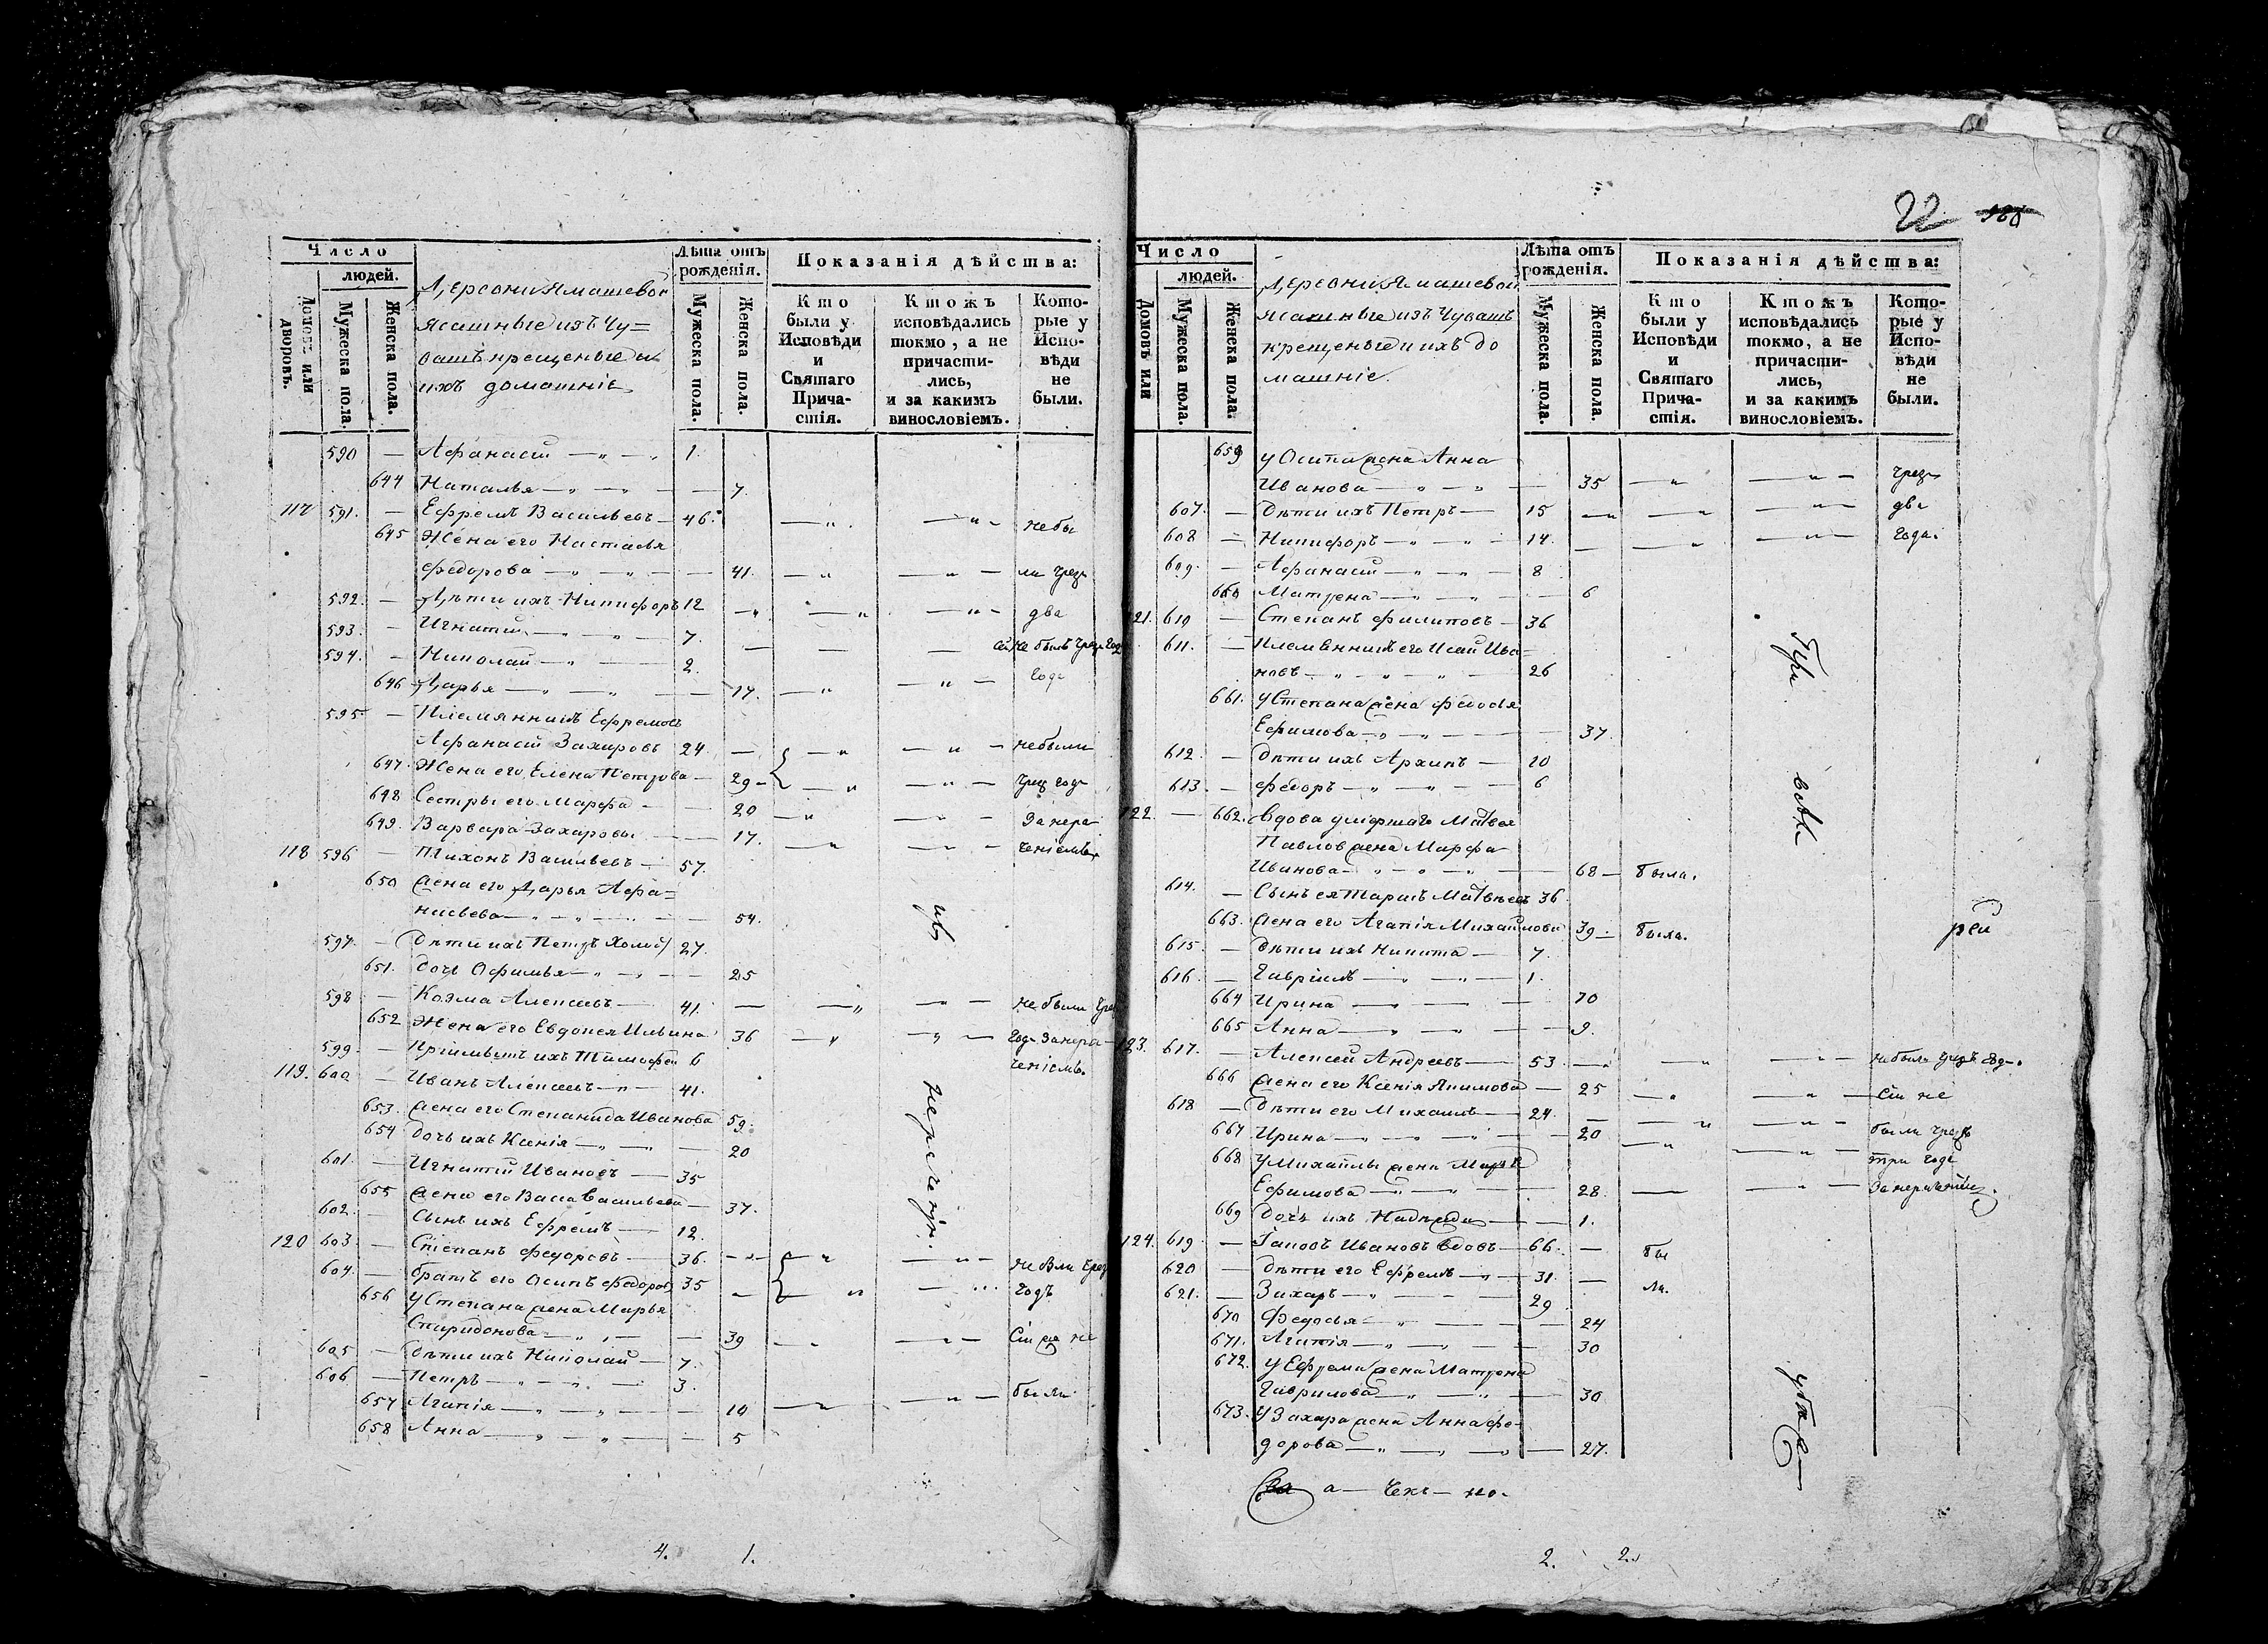 Число
людей.
Домовъ или дворовъ.
Мужеска пола.
Женска пола.
Деревни Ямашевой
ясашные изъ Чу=
вашъ крещеные и
ихъ домашніе
Лѣта отъ рожденія.
Мужеска пола.
Женска пола.
Показанія дѣйства:
Кто были у Исповѣди и Святаго Причастія.
Ктожъ исповѣдались токмо, а не причастились, и за какимъ винословіемъ.
Которые у Исповѣди не были.
590 — Афанасій — 1.
644 Наталья — 7.
117 591. — Ефремъ Васильевъ — 46. небы
645 Жена его Настасья
Федорова — 41. ли чрез
592. — Дѣти ихъ Никифоръ 12 два
593. — Игнатій — 7. не былъ чрез
594. — Николай — 2. года
646 Дарья — 17.
595 — Племянникъ Ефремовъ
Афанасій Захаровъ 24 — небыли
647 Жена его Елена Петрова — 29 чрез годъ
648 Сестры его Марфа — 20 за нера
649. Варвара Захаровы — 17. ченіемъ
118 596 — Тихонъ Васильевъ — 57.
650 жена его Дарья Афа=
насьева — 54.
597. — Дѣти ихъ Петръ 27.
651. дочь Офимья — 25
598 — Козма Алексѣевъ — 41. не были чрез
652 Жена его Евдокея Ильина 36 годъ за нера
599 — ихъ Тимофей 6 ченіемъ.
119. 600 — Иванъ Алексѣевъ — 41.
653. жена его Степанида Иванова 59.
654 дочь ихъ Ксенія — 20
601. — Игнатій Ивановъ — 35
655 жена его Васильева — 37.
602. — Сынъ ихъ Ефремъ — 12.
120 603 — Степанъ Федоровъ — 36. не были чрез
604. — братъ его Осипъ Федоровъ 35 годъ
656 у Степана жена Марья
Спиридонова — 39 не
605 — дѣти ихъ Николай — 7.
606 — Петръ — 3. были
657 Агапія — 10
658 Анна — 5
4. 1.
22
Число
людей.
Домовъ или
Мужеска пола.
Женска пола.
Деревни Ямашевой
ясашные изъ Чувашъ
крещеные и ихъ до
машніе.
Лѣта отъ рожденія.
Мужеска пола.
Женска пола.
Показанія дѣйства:
Кто были у Исповѣди и Святаго Причастія.
Ктожъ исповѣдались токмо, а не причастились, и за какимъ винословіемъ.
Которые у Исповѣди не были.
659 у Осипа жена Анна
Иванова — 35 чрез
607. — дѣти ихъ Петръ — 15 два
608 — Никифоръ — 14. года.
609. — Афанасій — 8
660 Матрена — 6
121. 610 — Степанъ Филиповъ — 36
611. — Племянникъ его Исай Ива=
новъ — 26
661. у Степана жена Федосья
Ефимова — 37.
612. — дѣти ихъ Архипъ — 10
613. — Федоръ — 6
122. — 662. вдова умершаго Матвея
Павлова жена Марфа
Иванова — 68 — была.
614. — Сынъ ея Матвеевъ 36.
663. жена его Агапія Михайлова 39 — была.
615. — дѣти ихъ Никита — 7.
616. — Гавріилъ — 1.
664 Ирина — 10
665 Анна — 9.
123. 617. — Алексей Андреевъ — 53 — небылъ чрезъ годъ.
666 жена его Ксенія Якимова — 25 Сіи не
618 — дѣти его Михаилъ — 24. были чрезъ
667 Ирина — 20 три года
668 у Михайлы жена Марья
Ефимова — 28.
669 дочь ихъ — 1.
124. 619. — Іаковъ Ивановъ вдовъ — 66. бы
620 — дѣти его Ефремъ — 31. ли.
621. — Захаръ — 29
670 Федосья — 24
671. Агапія — 30
672. у Ефрема жена Матрена
Гаврилова — 30
673. у Захара жена Анна Фе-
дорова — 27.
2. 2.